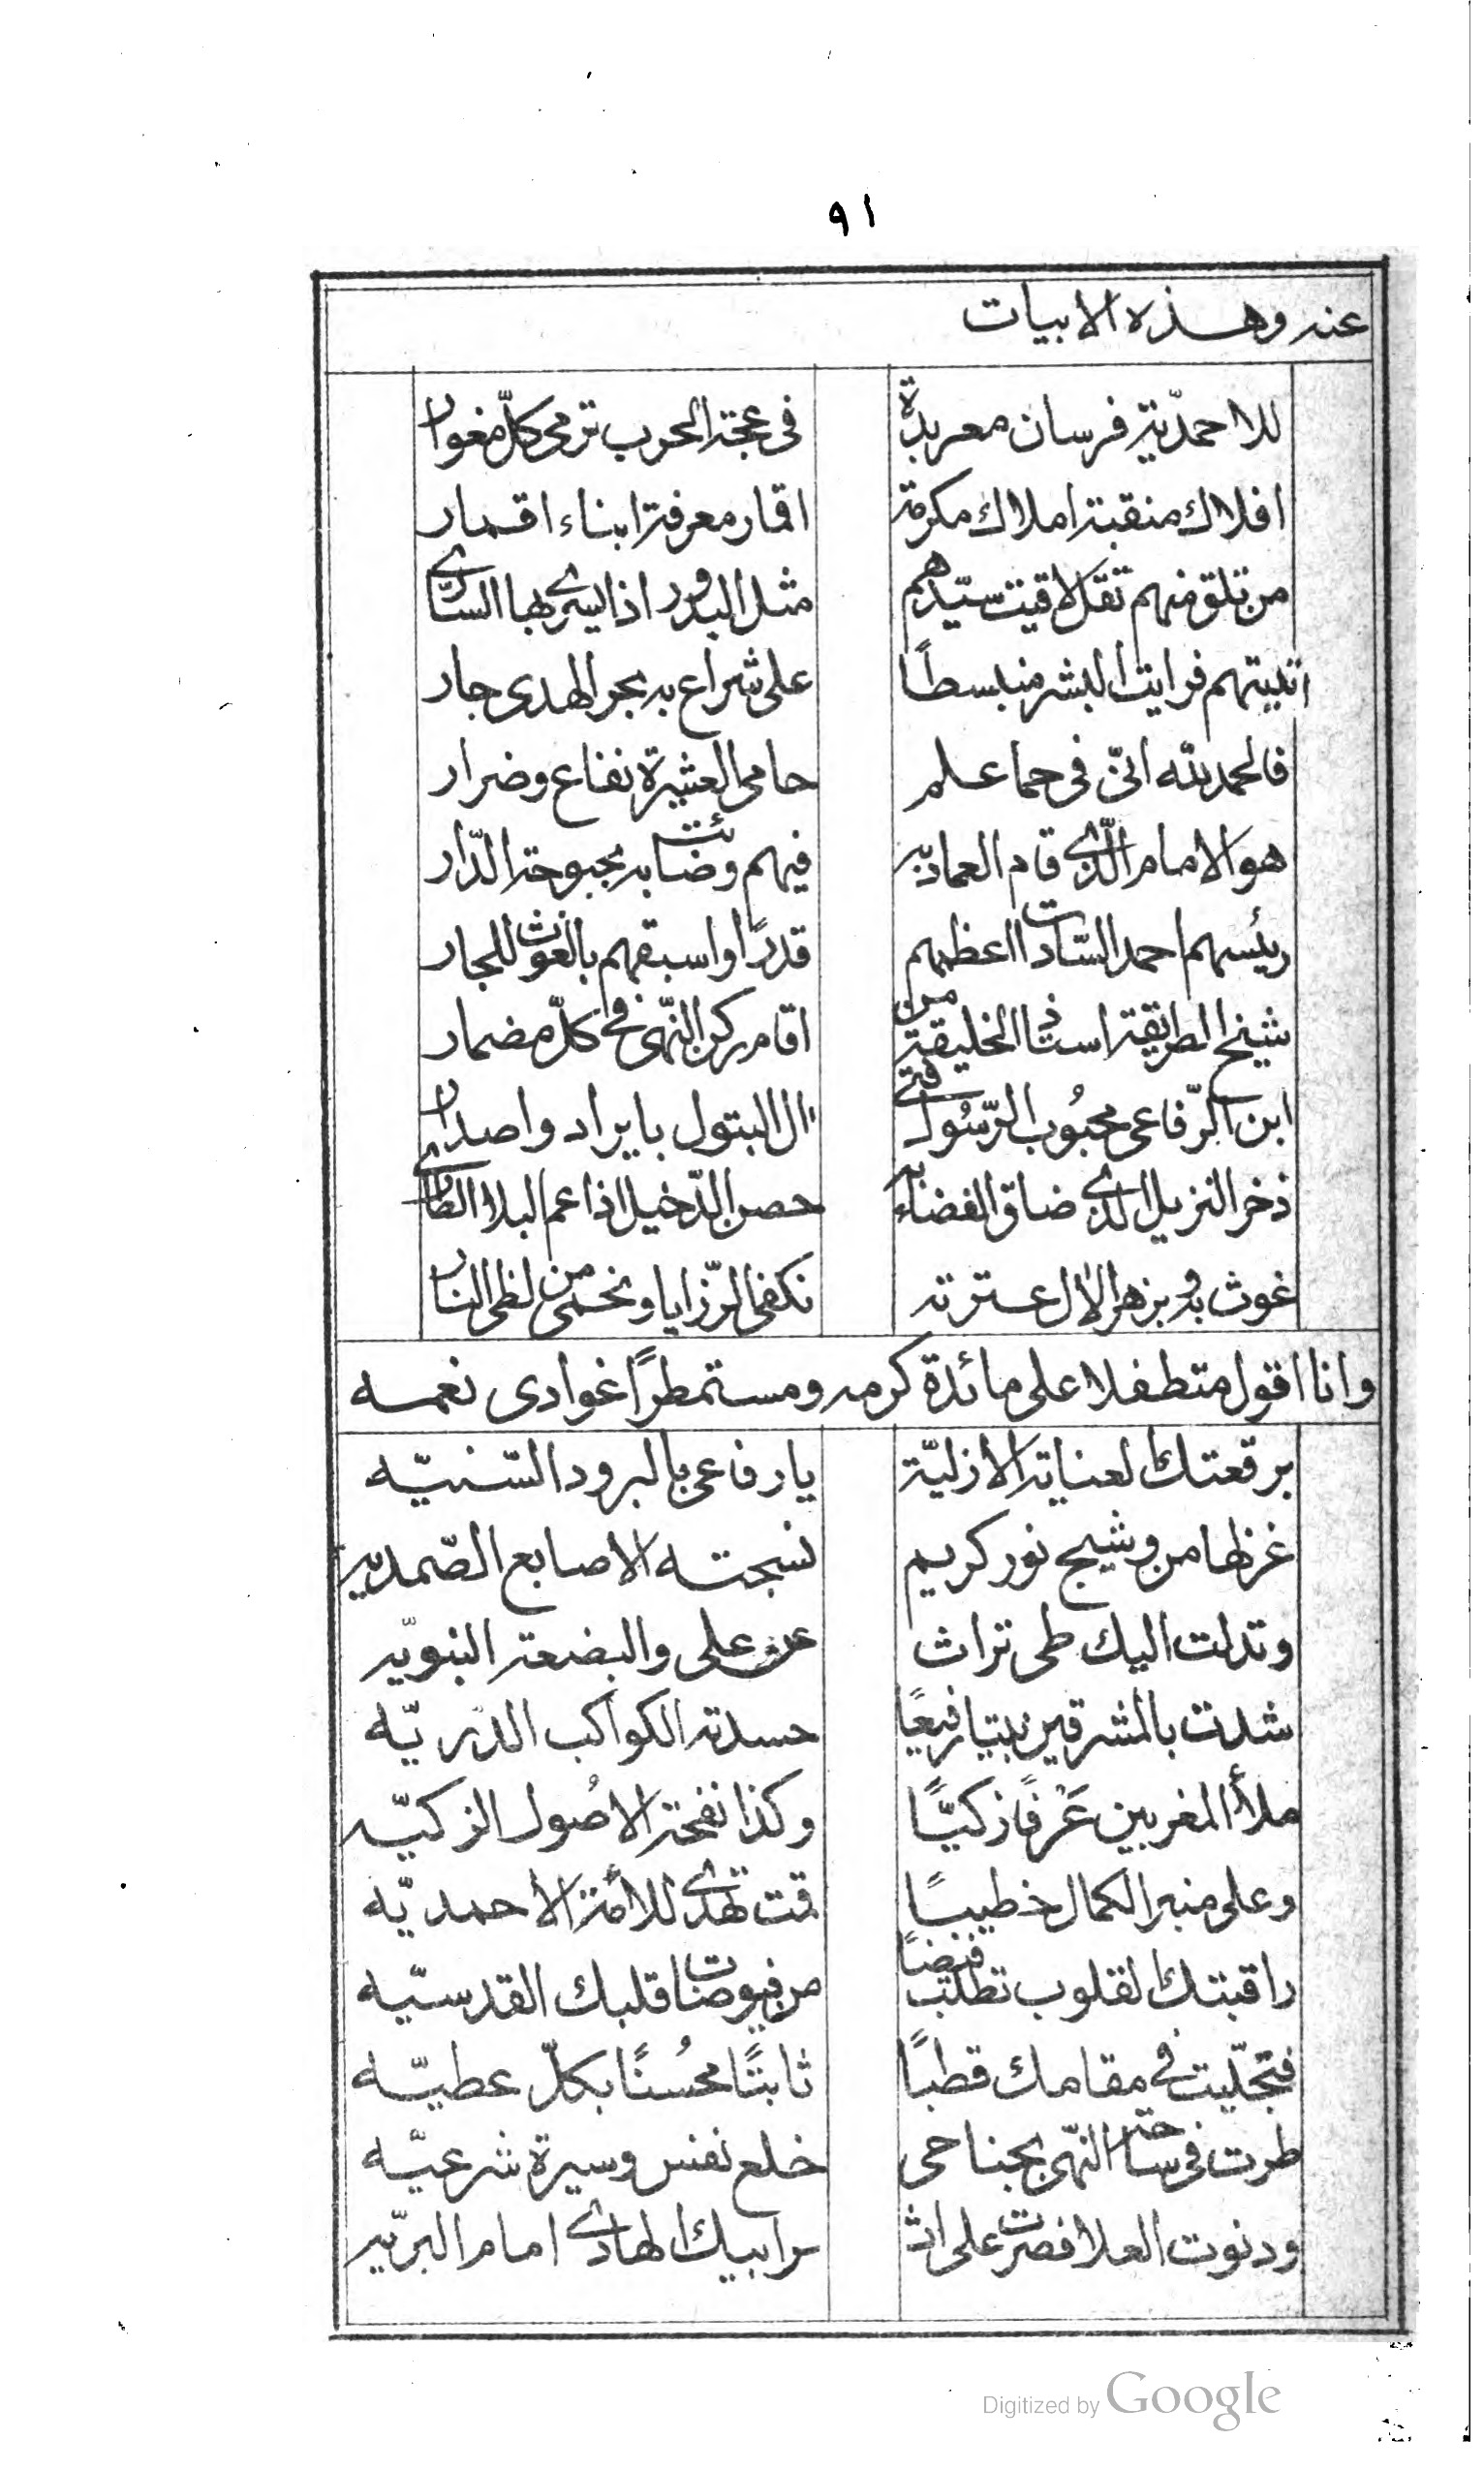 ٩١
عنه وهذه الابيات
للاحمديّة فرسان معربدة في عجة الحرب ترمى كلّ مغوار
افلاك منقبة املاك مكرمة اقمار معرفة ابناء اقمار
من تلق منهم تقل لاقيت سيّدهم مثل البدور اذا يسرى بها السّارى
اتيتهم فرايت البشر منبسطًا على شراع به بحر الهدى جار
فالحمد لله انّى فى حما علم حامى العشيرة نفاع وضرار
هو الامام الّذى قام العماد به فيهم وضائت به بحبوحة الدّار
رئيسهم احمد السّادات اعظمهم قدرًا واسبقهم بالغوث للجار
شيخ الطريقة استاذ الخليقة من اقام ركن النّهى فى كلّ مضمار
ابن الرّفاعى محبُوب الرّسُول فتى آل البتول بايراد واصدار
ذخر النزيل الذى ضاق الفضاء به حصن الدّخيل اذا عم البلا الطارى
غوث به وبزهر الآل عترته نكفى الرّزايا ونحمى من لظى النار
وانا اقول متطفلا على مائدة كرمه ومستمطرًا غوادى نعمه
برقعتك العناية الازليّة يا رفاعى بالبرود السّنيّه
غزلها من وشيج نور كريم نسجته الاصابع الصّمديه
وتدلت اليك طى تراث عن على والبضعة النبويّه
شدت بالمشرقين بيتا رفيعًا حسدته الكواكب الدّريّه
ملأ المغربين عَرْفًا زكيًّا وكذا نفحة الاصُول الزكيّه
وعلى منبر الكمال خطيبًا قمت تهدى للأمة الاحمديّه
راقبتك القلوب تطلب فيضًا من فيوضات قلبك القدسيّه
فتجلّيت فى مقامك قطبًا ثابتًا محُسنًا بكلّ عطيّه
طرت فى ساحة النّهى بجناحى خلع نفس وسيرة شرعيّه
ودنوت العلا فصرت على اثـ ـر ابيك الهادى امام البريّه
Digitized by Google